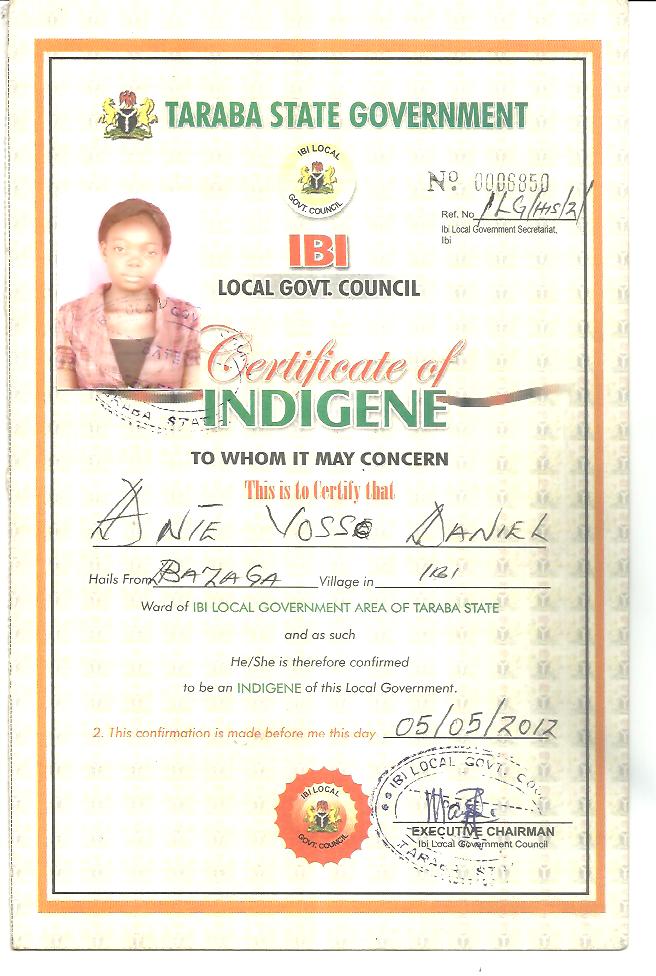 TARABA STATE GOVERNMENT
IBI LOCAL
GOVT. COUNCIL
Nº 0006850
Ref. No /LG/HIS/2/
Ibi Local Government Secretariat,
Ibi
IBI
LOCAL GOVT. COUNCIL
Certificate of
INDIGENE
TARABA STAT
TO WHOM IT MAY CONCERN
This is to Certify that
ANIE VOSSO DANIEL
Hails From BAZAGA Village in IBI
Ward of IBI LOCAL GOVERNMENT AREA OF TARABA STATE
and as such
He/She is therefore confirmed
to be an INDIGENE of this Local Government.
2. This confirmation is made before me this day 05/05/2012
IBI LOCAL
GOVT. COUNCIL
IBI LOCAL GOVT. CO
EXECUTIVE CHAIRMAN
Ibi Local Government Council
TARABA ST